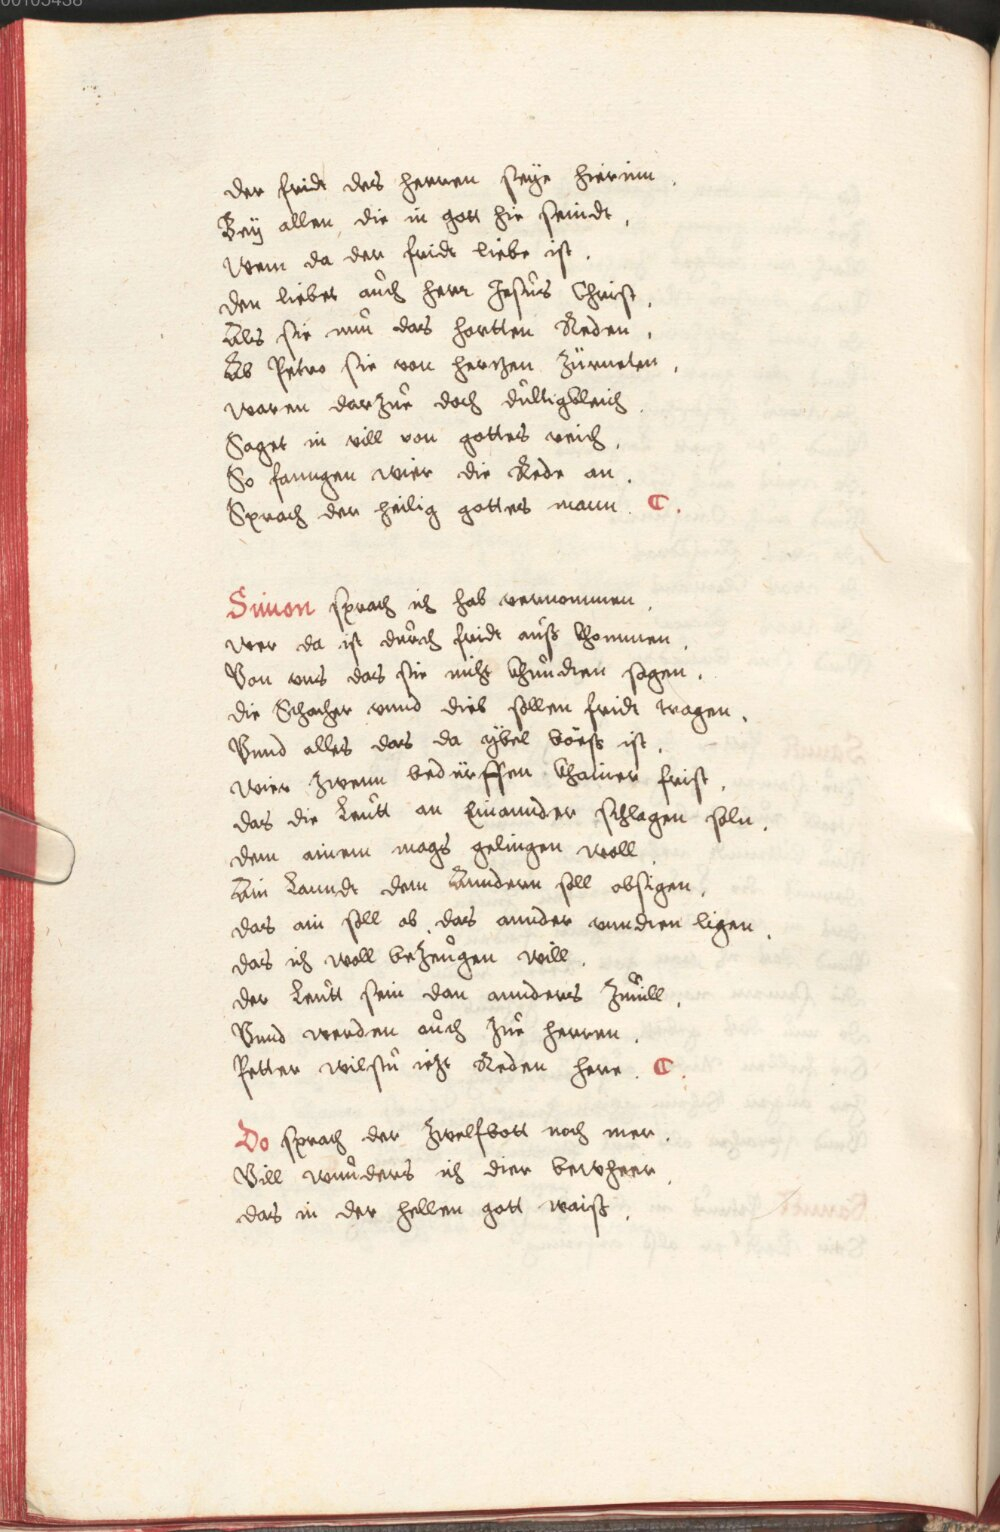 der fridt des herren seye hierinn.
Bey allen, die in gott hie seindt,
Wem da der fridt liebe ist.
den liebet auch herr Jesus Christ.
Als sie nun das hortten Reden,
Ab Petro sie von hertzen Zürneten,
Waren darzue doch dultigkleich
Saget in vill von gottes reich.
So fanngen wier die Rede an.
Sprach der heilig gottes mann. C.
Simon sprach ich hab vernommen,
Wer da ist durch fridt auß khommen,
Von uns das sie nicht khundten sagen,
die Schacher vnnd dieb sollen fridt tragen,
Vnnd alles das da ybel böeß ist,
Wier Zwenn bedürffen khainer frist,
das die Leütt an Einannder schlagen soln,
dem ainem mags gelingen woll
Ain Lanndt dem Anndern soll obsigen,
das ain soll ob, das annder vnndten ligen,
das ich woll beZeugen will.
der Leütt sein dan annders Zuuill,
Vnnd werden auch Zue herren,
Petter wilstu ietzt Reden here. C.
Do sprach der Zwelfbott noch mer,
Vill wunders ich dier bewheer,
das in der hellen gott waiß.